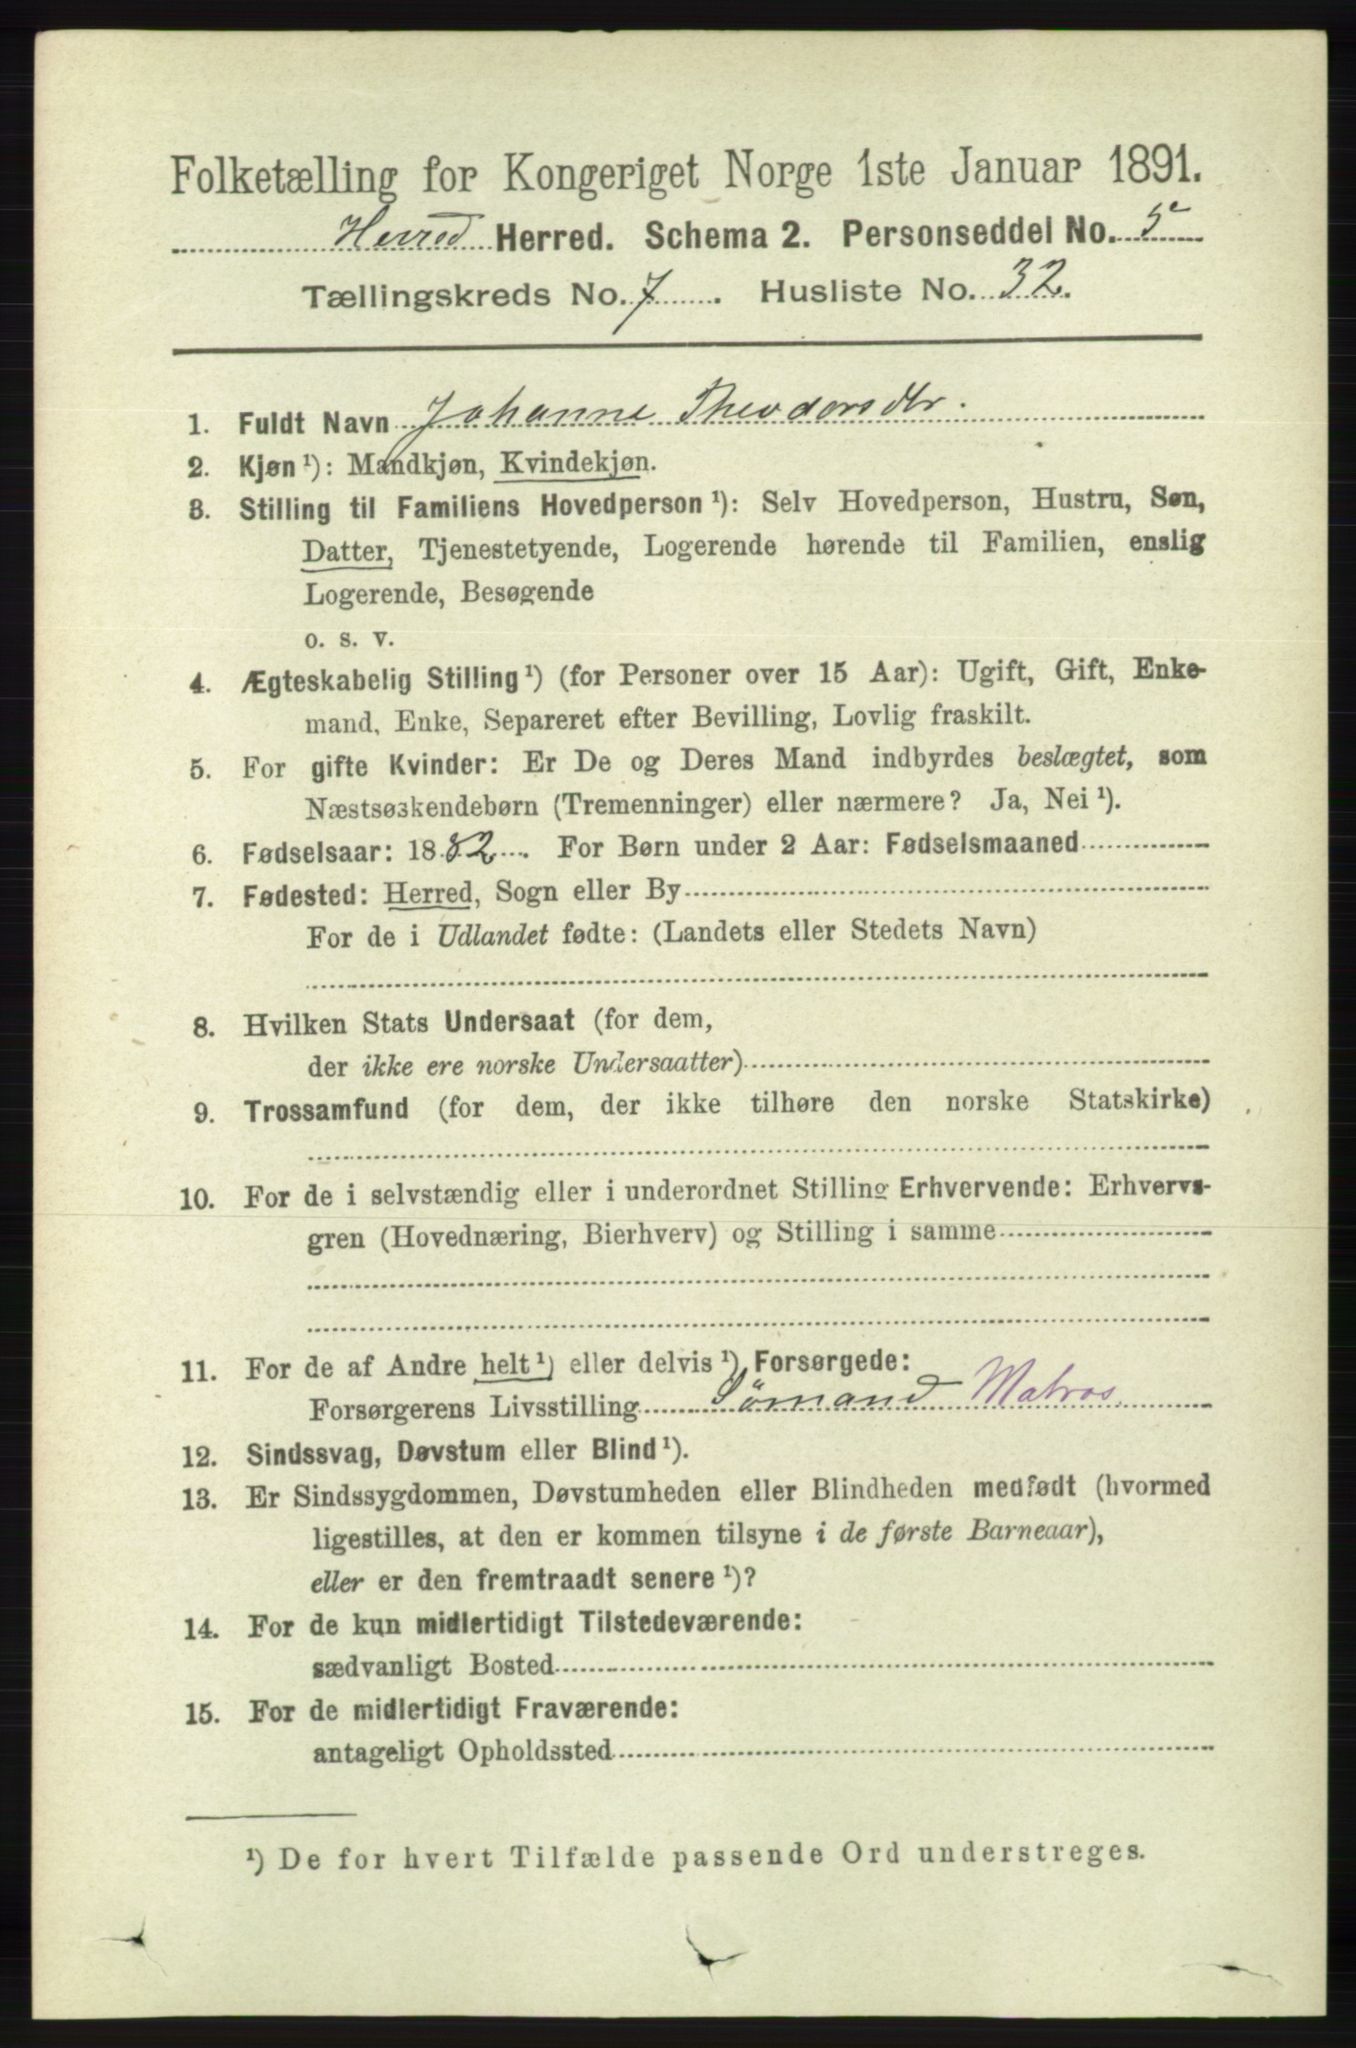 Folketælling for Kongeriget Norge 1ste Januar 1891.
Herred Herred. Schema 2. Personseddel No. 5
Tællingskreds No. 7. Husliste No. 32.
1. Fuldt Navn Johanne Theodorsdtr.
2. Kjøn ¹): Mandkjøn, Kvindekjøn.
3. Stilling til Familiens Hovedperson ¹): Selv Hovedperson, Hustru, Søn,
Datter, Tjenestetyende, Logerende hørende til Familien, enslig
Logerende, Besøgende
o. s. v.
4. Ægteskabelig Stilling ¹) (for Personer over 15 Aar): Ugift, Gift, Enke-
mand, Enke, Separeret efter Bevilling, Lovlig fraskilt.
5. For gifte Kvinder: Er De og Deres Mand indbyrdes beslægtet, som
Næstsøskendebørn (Tremenninger) eller nærmere? Ja, Nei ¹).
6. Fødselsaar: 1882. For Børn under 2 Aar: Fødselsmaaned
7. Fødested: Herred, Sogn eller By
For de i Udlandet fødte: (Landets eller Stedets Navn)
8. Hvilken Stats Undersaat (for dem,
der ikke ere norske Undersaatter)
9. Trossamfund (for dem, der ikke tilhøre den norske Statskirke)
10. For de i selvstændig eller i underordnet Stilling Erhvervende: Erhvervs-
gren (Hovednæring, Bierhverv) og Stilling i samme
11. For de af Andre helt ¹) eller delvis ¹) Forsørgede:
Forsørgerens Livsstilling Sømand Matros.
12. Sindssvag, Døvstum eller Blind ¹).
13. Er Sindssygdommen, Døvstumheden eller Blindheden medfødt (hvormed
ligestilles, at den er kommen tilsyne i de første Barneaar),
eller er den fremtraadt senere ¹)?
14. For de kun midlertidigt Tilstedeværende:
sædvanligt Bosted
15. For de midlertidigt Fraværende:
antageligt Opholdssted
¹) De for hvert Tilfælde passende Ord understreges.